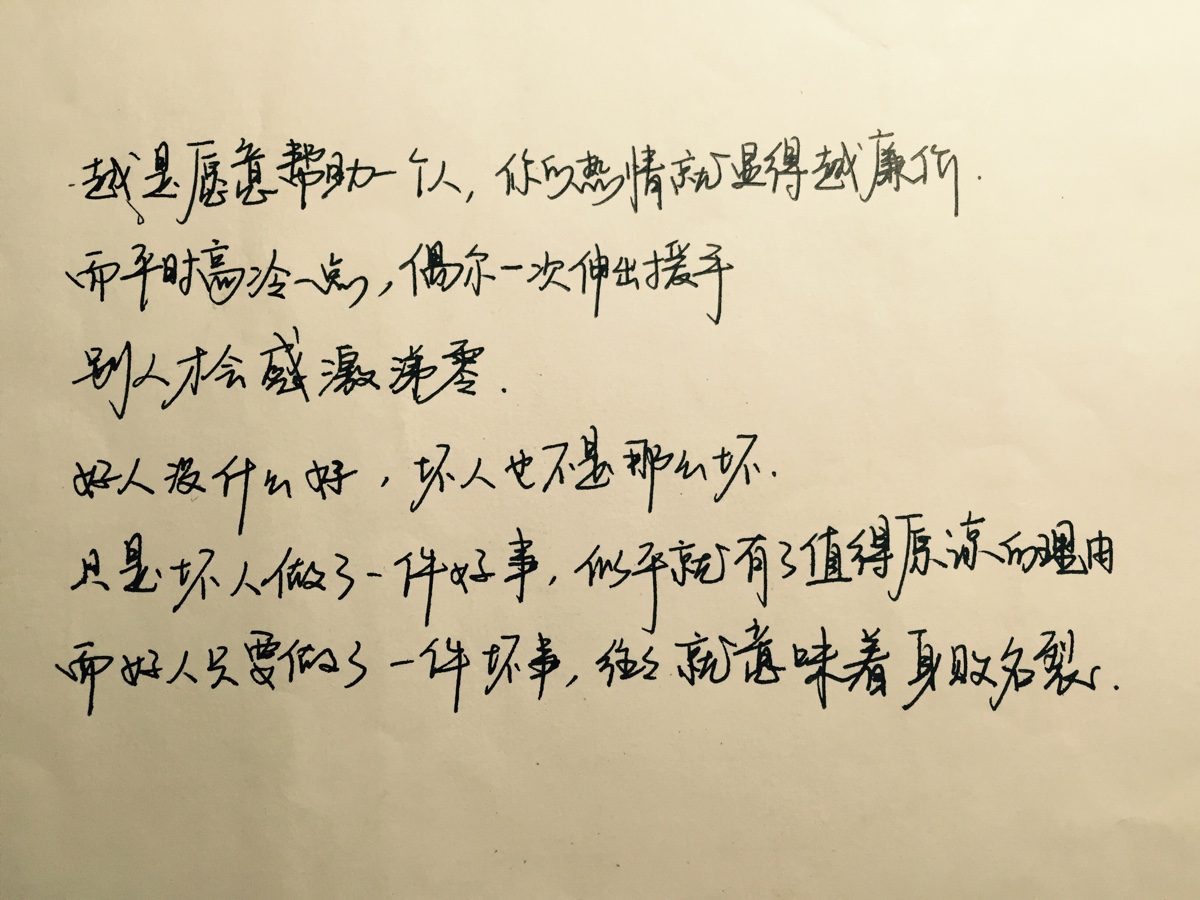 越是愿意帮助一个人,你的热情就显得越廉价.
而平时高冷一点,偶尔一次伸出援手
别人才会感激涕零.
好人没什么好,坏人也不是那么坏.
只是坏人做了一件好事,似乎就有了值得原谅的理由
而好人只要做了一件坏事,往往就意味着身败名裂.